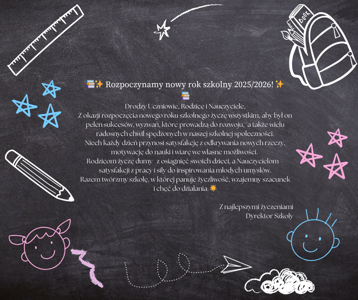 📚✨ Rozpoczynamy nowy rok szkolny 2025/2026! ✨
📚
Drodzy Uczniowie, Rodzice i Nauczyciele,
Z okazji rozpoczęcia nowego roku szkolnego życzę wszystkim, aby był on
pełen sukcesów, wyzwań, które prowadzą do rozwoju, a także wielu
radosnych chwil spędzonych w naszej szkolnej społeczności.
Niech każdy dzień przynosi satysfakcję z odkrywania nowych rzeczy,
motywację do nauki i wiarę we własne możliwości.
Rodzicom życzę dumy z osiągnięć swoich dzieci, a Nauczycielom
satysfakcji z pracy i siły do inspirowania młodych umysłów.
Razem twórzmy szkołę, w której panuje życzliwość, wzajemny szacunek
i chęć do działania. 🌟
Z najlepszymi życzeniami
Dyrektor Szkoły